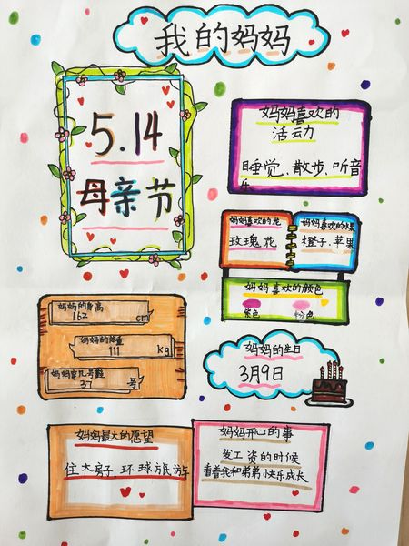 我的妈妈
5.14
母亲节
妈妈喜欢的
活动力
睡觉、散步、听音
妈妈喜欢的花
玫瑰花
妈妈喜欢的水果
橙子、苹果
妈妈喜欢的颜色
紫色
粉色
妈妈的身高
162 cm
妈妈的体重
111 kg
妈妈穿几号鞋
37 号
妈妈的生日
3月9日
妈妈最大的愿望
住大房子 环球旅游
妈妈开心的事
发工资的时候
看着我和弟弟快乐成长